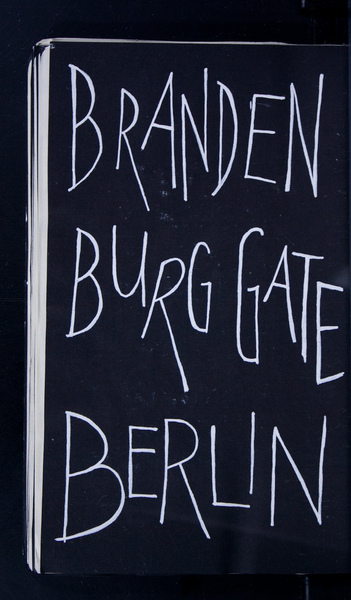 BRANDEN
BURG GATE
BERLIN